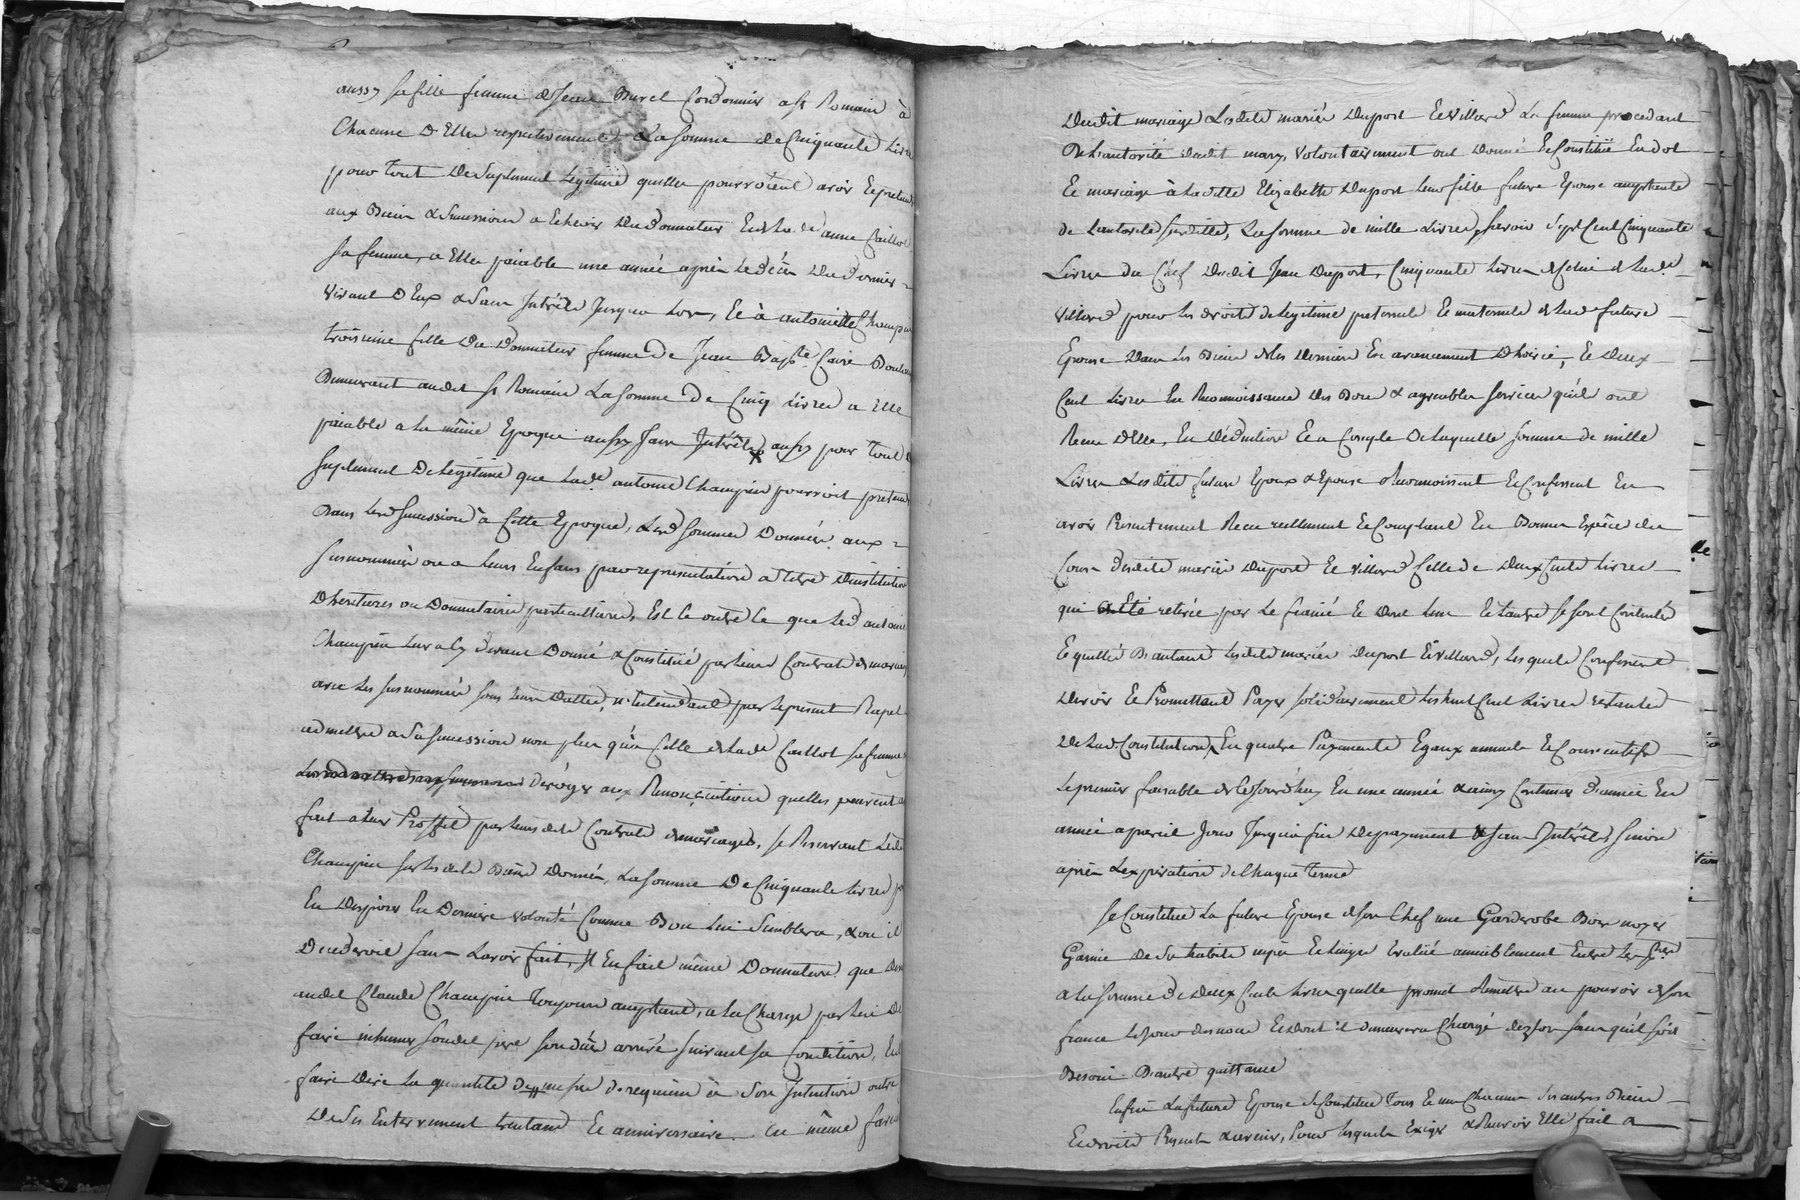 aussy sa fille femme de Jean Burel Cordonnier a St Romain à
Chacune D'Elles respectivement La somme de Cinquante Livres
pour tout De Suplement Legitime quelles pourroient avoir Et pretendre
aux Biens & Sucessions a Echeoir Du donnateur Et de la de anne Caillot
sa femme, a Elles paiable une année après Le décès Du dernier
vivant D'Eux & Sans Intérêt Jusqua Lors, Et à antoinette Champin
troisieme fille Du Donnateur femme De Jean Baptte Caire
Demeurant audit St Romain La somme De Cinq Livres a Elle
paiable a la même Epoque aussy Sans Intérêts aussy pour tout
Suplement De Legitime que lade antoinette Champin pourroit pretendre
Dans Lesd sucessions à Cette Epoque, Lesd sommes Données aux
susnommées ou a leurs Enfans par representation a titre Dinstitution
Dheritieres ou Donnataires particulieres, Est Ce outre Ce que Led antoine
Champin Leur a Cy devant Donné & Constitué par leurs Contrats de mariage
avec les susnommés sous leurs dattes, n'Entendant par Le present Rapel
admettre a Sa sucession non plus qu'a Celle de lade Caillot sa femme
Deroger aux Renonciations quelles peuvent avoir
fait a leur Proffit par leurs dits Contrats de mariages, se Reservant Ledit
Champin sur les dits Biens Donnés, La somme De Cinquante livres pour
En Disposer En Derniere volonté Comme Bon Lui Semblera, & ou il
Decederoit sans Lavoir fait, Il En fait même Donnation que Dessus
audit Claude Champin Toujours acceptant, a la Charge par lui De
faire inhumer sondit pere son décès arrivé suivant sa Condition, Et de
faire Dire La quantité de messes de requiem à Son Intention outre
De Ses Enterrement trentane Et anniversaire. En même faveur
Dudit mariage Lesdits mariés Duport Et Villard La femme procedant
De Lautorité dudit mary, volontairement ont Donné Et Constitué En dot
Et mariage à Ladite Elizabeth Duport leur fille future Epouse acceptante
de Lautorité susdite, La somme de mille Livres, savoir sept Cent Cinquante
Livres du Chef Dudit Jean Duport, Cinquante livres de Celui de lade
Villard pour les droits de legitime paternels Et maternels de lade future
Epouse Dans les Biens de ses Derniers En avancement Dhoirie, Et Deux
Cent Livres En Reconnoissance des Bons & agreables services qu'ils ont
Recus d'Elle, En Déduction Et a Compte De laquelle somme de mille
Livres Lesdits futurs Epoux & Epouse Reconnoissent Et Confessent En
avoir Presentement Recu reellement Et Comptant En Bonnes Espèces du
Cours desdits mariés Duport Et Villard Celle de Deux Cents Livres
qui a Eté retirée par Le fiancé Et Dont Lun Et Lautre se sont Contentés
Et quittés D'autant lesdits mariés Duport Et Villard, lesquels Confessent
Devoir Et Promettent Payer solidairement les huit Cent Livres restantes
De lad. Constitution, En quatre Payements Egaux annuels Et Consecutifs
Le premier faisable de Ce Jourd'huy En une année & ainsy Continuer D'année En
année a pareil Jour Jusqu'a fin De payement & Sans Intérêts Sinon
après Lexpiration de Chaque Terme
Se Constitue La future Epouse de son Chef une Garderobe Bois noyer
Garnie De Ses habits nipes Et linges Evalués amiablement Entre Les Pies
a La somme De Deux Cents livres quelle promet Remettre au pouvoir de son
fiancé Le Jour des noces Et dont il demeurera Chargé des lors sans quil soit
Besoin D'autre quittance
Enfin La future Epouse se Constitue Tous Et un Chacuns Ses autres Biens
Et droits Presents & avenir, Pour lesquels Exiger & Recevoir Elle fait a